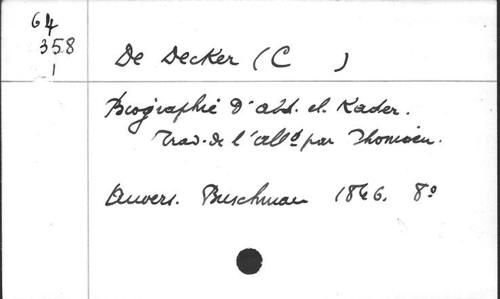 64
358
1
De Decker (C )
Biographie d'Abd. el. Kader.
Trad. de l'alld par Thonissen.
Anvers. Buschman 1846. 8o